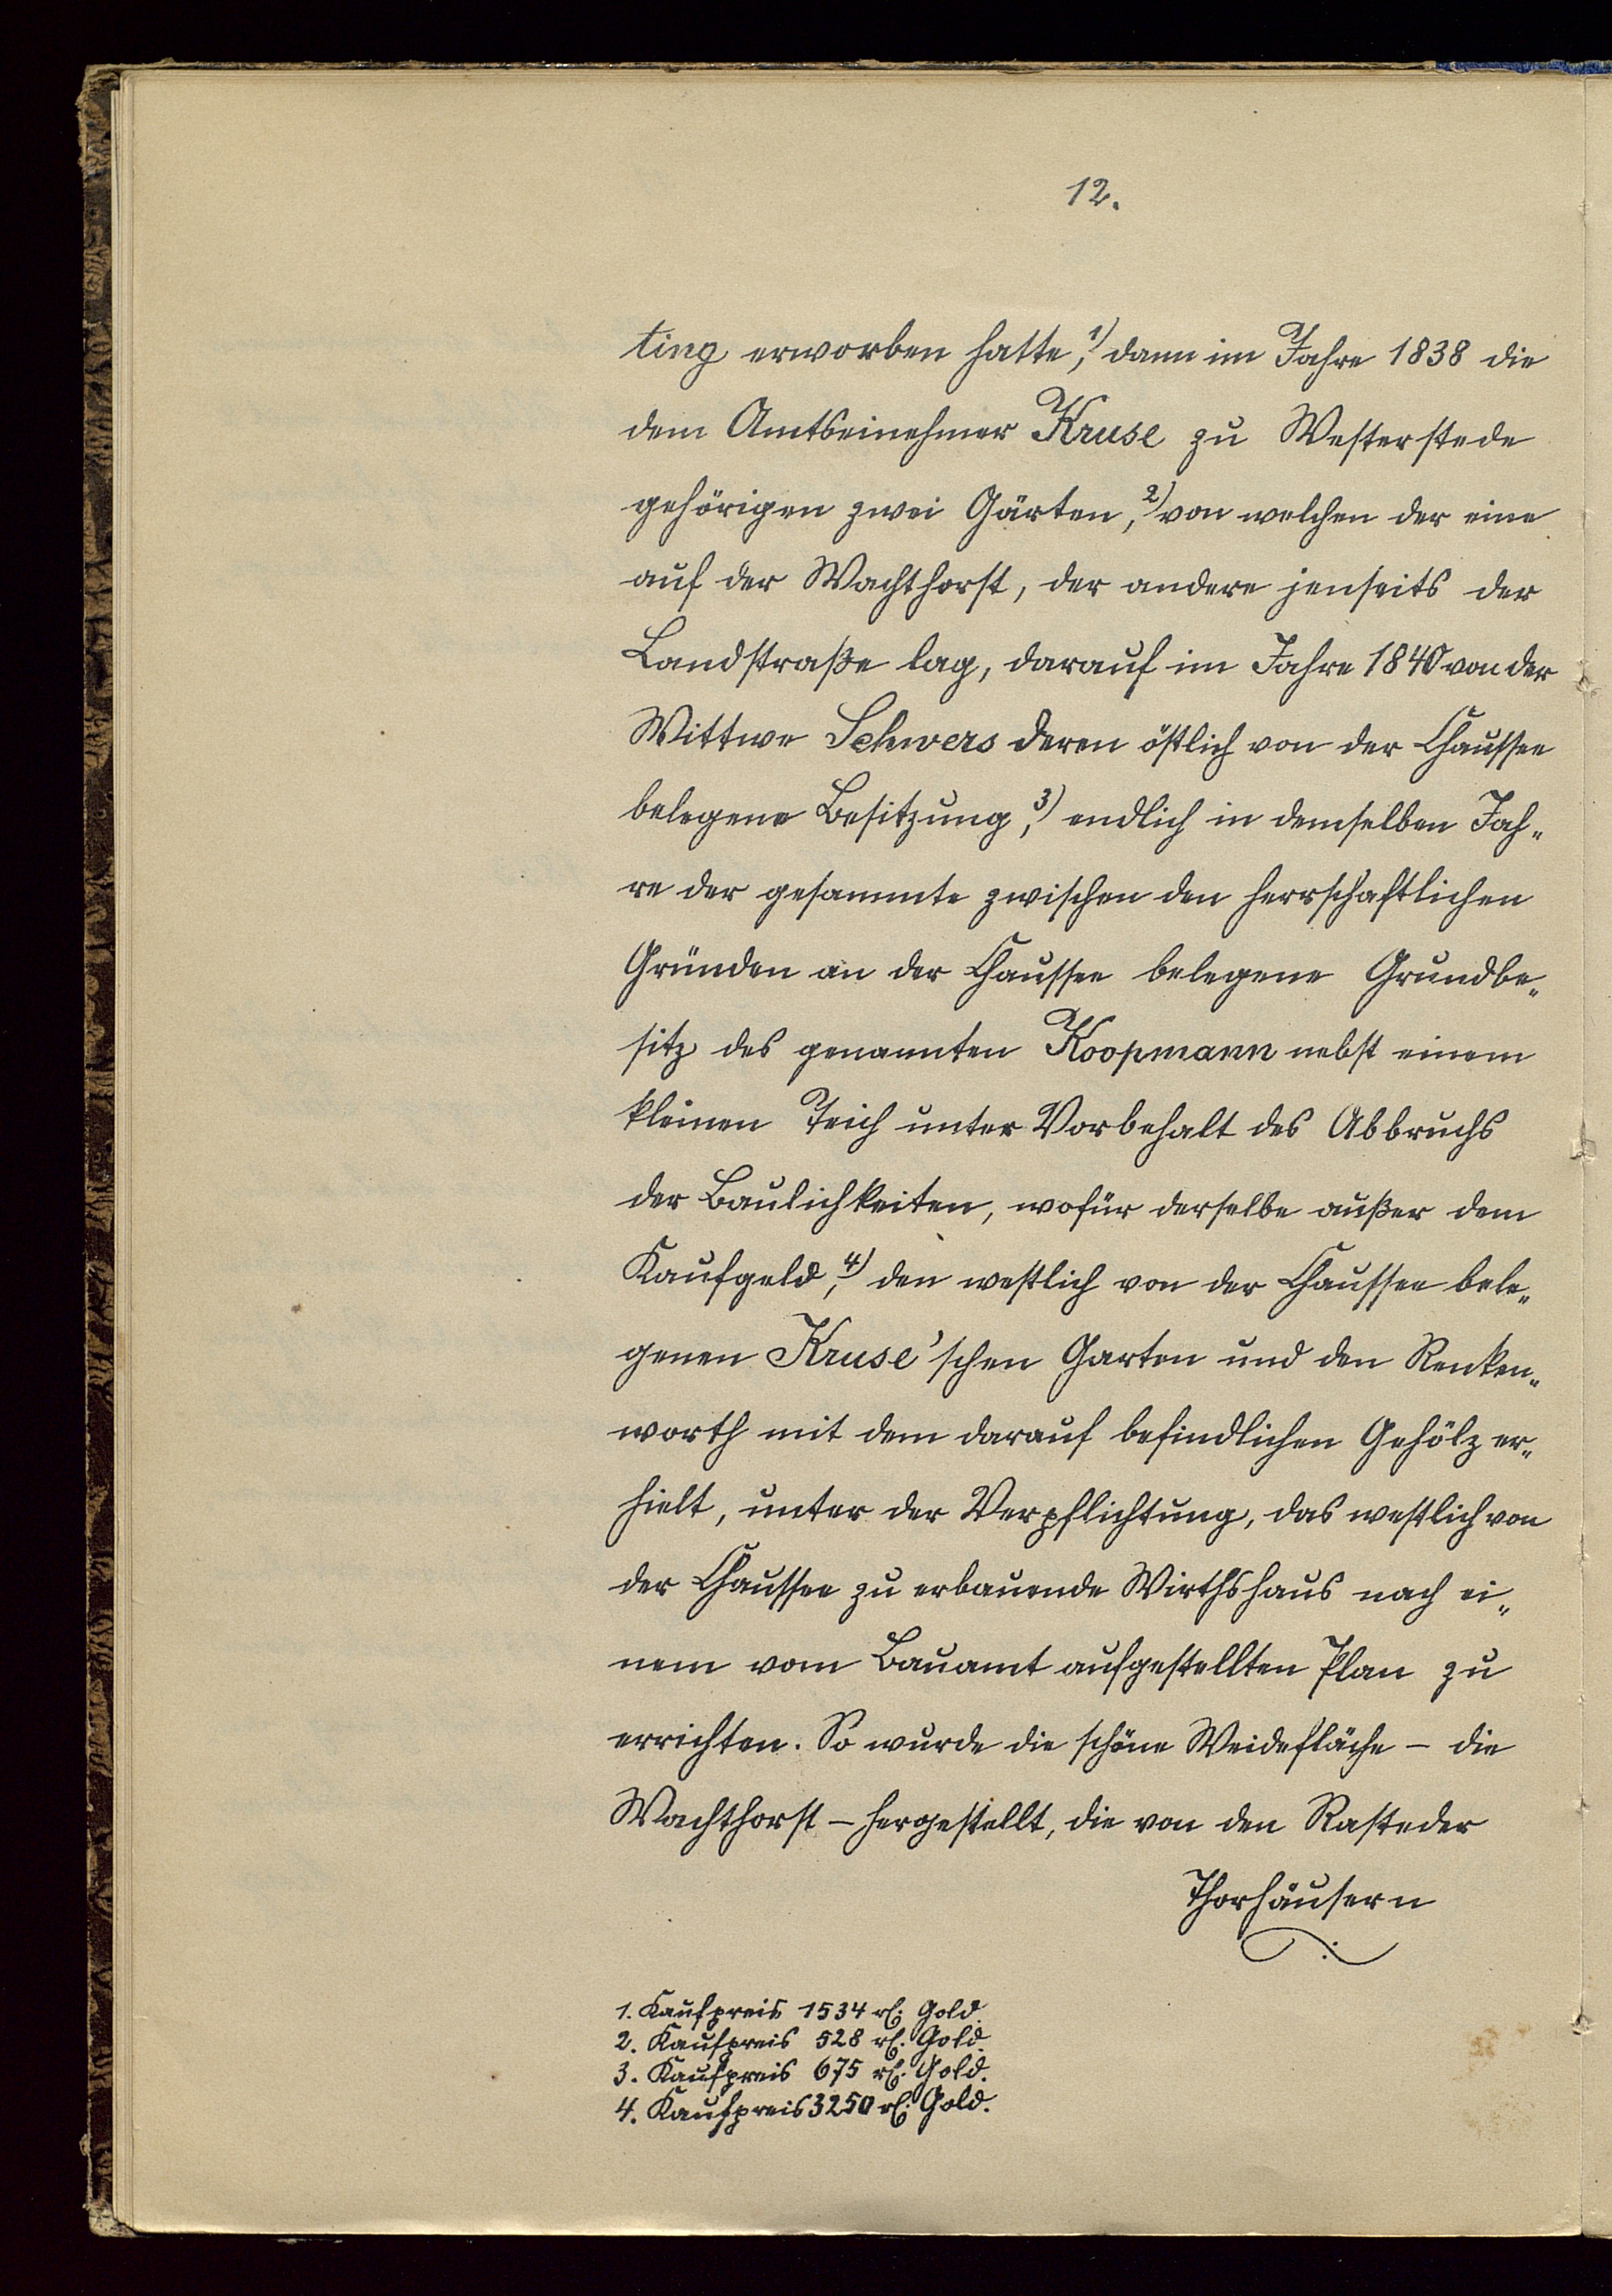 12.
ting erworben hatte,¹⁾ dann im Jahre 1838 die
dem Amtseinehmer Kruse zu Westerstede
gehörigen zwei Gärten,²⁾ von welchen der eine
auf der Wachthorst, der andere jenseits der
Landstraße lag, darauf im Jahre 1840 von der
Wittwe Schwers deren östlich von der Chaussee
belegene Besitzung,³⁾ endlich in demselben Jah„
re der gesammte zwischen den herrschaftlichen
Gründen an der Chaussee belegene Grundbe„
sitz des genannten Koopmann nebst einem
kleinen Teich unter Vorbehalt des Abbruchs
der Baulichkeiten, wofür derselbe außer dem
Kaufgeld,⁴⁾ den westlich von der Chaussee bele„
genen Kruse'schen Garten und den Renken„
worth mit dem darauf befindlichen Gehölz er„
hielt, unter der Verpflichtung, das westlich von
der Chaussee zu erbauende Wirthshaus nach ei„
nem vom Bauamt aufgestellten Plan zu
errichten. So wurde die schöne Weidefläche – die
Wachthorst – hergestellt, die von den Rasteder
Thorhäusern
1. Kaufpreis 1534 rℓ. Gold.
2. Kaufpreis 528 rℓ. Gold.
3. Kaufpreis 675 rℓ. Gold.
4. Kaufpreis 3250 rℓ. Gold.